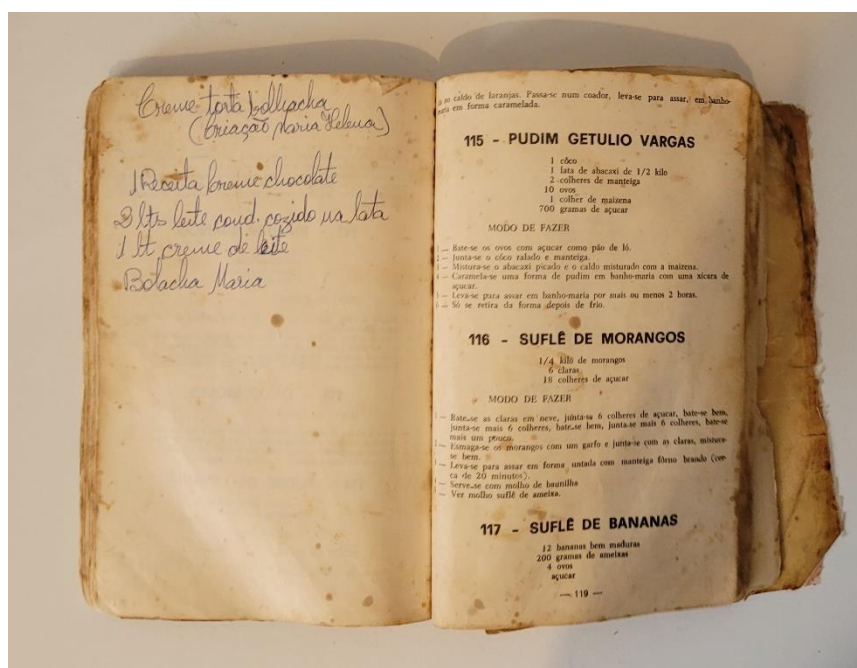 Creme torta bolhacha
(Criação Maria Helena)
1 Receita creme chocolate
2 lts leite cond. cozido na lata
1 lt creme de leite
Bolacha Maria
no caldo de laranjas. Passa-se num coador, leva-se para assar, em banho-
maria em forma caramelada.
115 - PUDIM GETULIO VARGAS
1 côco
1 lata de abacaxi de 1/2 kilo
2 colheres de manteiga
10 ovos
1 colher de maizena
700 gramas de açucar
MODO DE FAZER
— Bate-se os ovos com açucar como pão de ló.
— Junta-se o côco ralado e manteiga.
— Mistura-se o abacaxi picado e o caldo misturado com a maizena.
— Caramela-se uma forma de pudim em banho-maria com uma xícara de
açucar.
— Leva-se para assar em banho-maria por mais ou menos 2 horas.
— Só se retira da forma depois de frio.
116 - SUFLÊ DE MORANGOS
1/4 kilo de morangos
6 claras
18 colheres de açucar
MODO DE FAZER
— Bate-se as claras em neve, junta-sa 6 colheres de açucar, bate-se bem,
junta-se mais 6 colheres, bate-se bem, junta-se mais 6 colheres, bate-se
mais um pouco.
— Esmaga-se os morangos com um garfo e junta-se com as claras, misture-
se bem.
— Leva-se para assar em forma untada com manteiga fôrno brando (cer-
ca de 20 minutos).
— Serve-se com molho de baunilha
— Ver molho suflê de ameixa.
117 - SUFLÊ DE BANANAS
12 bananas bem maduras
200 gramas de ameixas
4 ovos
açucar
— 119 —